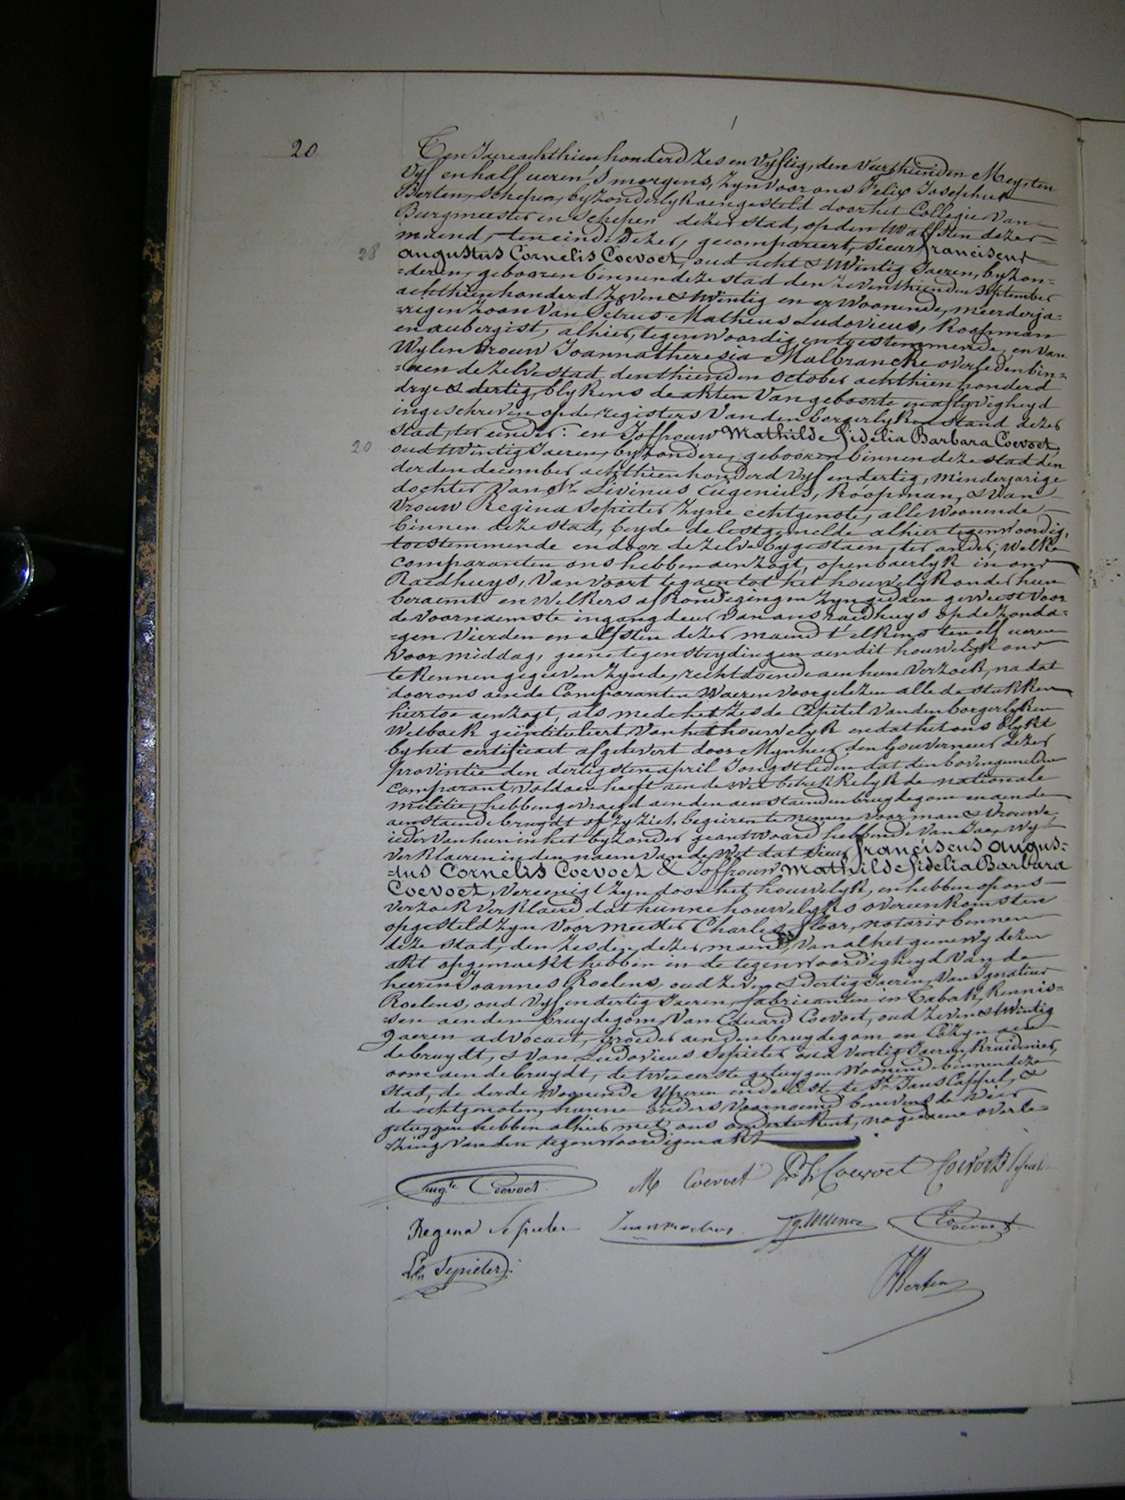 20
Ten Jaere achthien honderd zes en vyftig, den veerthienden Mey, ten
Vyf en half ueren, 's morgens, zyn voor ons Felix Josephus
Berten, Schepen, byzonderlyk aengesteld door het Collegie van
Burgmeester en Schepen dezer stad, op den dezer
maend, ten einde dezer, gecompareert, sieur franciscus
28
augustus Cornelis Coevoet, oud acht & twintig Jaeren, byzon=
=deren, gebooren binnen deze stad den zeventhienden september
achthien honderd zeven & twintig en er woonende, meerderja=
=rigen zoon van Petrus Matheus Ludovicus, Koopman
en aubergist, alhier tegenwoordig en toestemmende, en van
Wylen Vrouw Joanna theresia Malbrancke overleden bin=
=nen dezelve stad, den thienden October achthien honderd
drye & dertig, blykens de akten van geboorte en aflyvigheyd
ingeschreven op de registers van den borgerlyken stand dezer
stad, ter eender: en Joffrouw Mathilde fidelia Barbara Coevoet,
20
oud twintig Jaeren, byzondere, gebooren binnen deze stad den
derden december achthien honderd vyf en dertig, minderjarige
dochter van Sr. Livinus Eugenius, Koopman, & van
Vrouw Regina Sepieter zyne echtgenote, alle woonende
binnen deze stad, beyde de lestgemelde alhier tegenwoordig,
toestemmende en door dezelve bygestaen, ter ander; welke
comparanten ons hebben aenzogt, openbaerlyk in ons
Raedhuys, van voort te gaen tot het houwelyk onder hun
beraemt en welkers afkondigingen zyn gedaen geweest voor
de voornaemste ingangdeur van ons raedhuys op de zonda=
=gen vierden en elfsten dezer maend telkens ten elf ueren
voormiddag; geene tegenstrydingen aen dit houwelyk ons
te kennen gegeven zynde, rechtdoende aen hun verzoek, na dat
door ons aen de Comparanten waeren voorgelezen alle de stukken
hiertoe aenzogt, als mede het zesde Capitel van den borgerlyken
Wetboek geïntituleert van het houwelyk en dat het ons blykt
by het certificaet afgelevert door Mynheer den Gouverneur dezer
provintie den dertigsten april Jongstleden dat den bovengemelden
comparant voldaen heeft aen de wet betrekkelyk de nationale
militie, hebben gevraegd aen den aenstaenden bruydegom en aen de
aenstaende bruydt of zy zich begeeren te nemen voor man & vrouwe,
ieder van hun in het byzonder geantwoord hebbende van Jae, wy
verklaeren in den naem van de Wet dat sieur franciscus augus=
=tus Cornelis Coevoet & Joffrouw Mathilde fidelia Barbara
Coevoet, vereenigt zyn door het houwelyk, en hebben op ons
verzoek verklaerd dat hunne houwelyks overeenkomsten
opgesteld zyn voor meester Charles floor, notaris binnen
deze stad, den zesden dezer maend, van al het geene wy dezen
akt opgemaekt hebben in de tegenwoordigheyd van de
heeren Joannes Roelens, oud zeven & dertig Jaeren, van Ignatius
Roelens, oud vyf en dertig Jaeren, fabricanten in Tabak, Kennis=
=sen aen den bruydegom, van Eduard Coevoet, oud zeven & twintig
Jaeren advocaet, broeder aen den bruydegom en Cozyn aen
de bruydt, & van Ludovicus Sepieter veertig Jaeren, Kruidenier,
oom aen de bruydt, de twee eerste getuygen woonende binnen deze
stad, de derde woonende Yperen en de leste te St. Jans Cappel, &
de echtgenoten, hunne ouders voornoemd benevens de vier
getuygen hebben alhier met ons onderteekent, na gedaene overle=
=zing van den tegenwoordigen akt
Augte Coevoet. M Coevoet Coevoet Coevoet
Regina Sepieter E Coevoet
Ls Sepieter
Berten